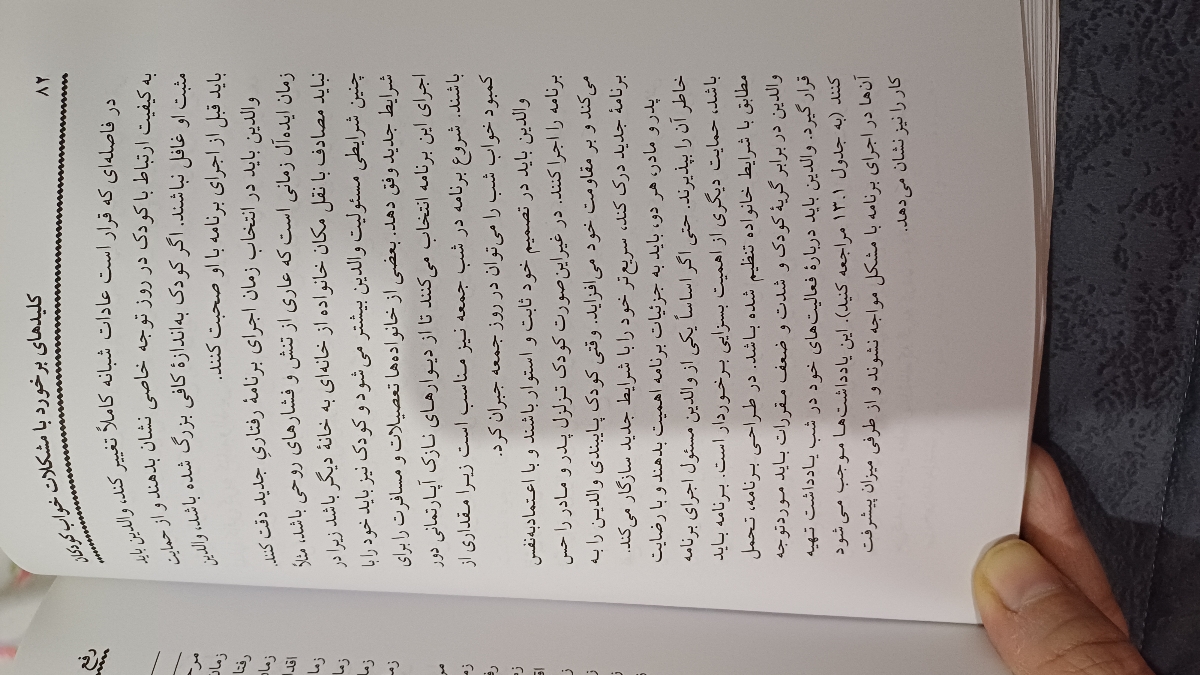 ۸۲
کلیدهای برخورد با مشکلات خواب کودکان
در فاصله‌ای که قرار است عادات شبانه کاملاً تغییر کند، والدین باید
به کیفیت ارتباط با کودک در روز توجه خاصی نشان بدهند و از حمایت
مثبت او غافل نباشند. اگر کودک به‌اندازهٔ کافی بزرگ شده باشد، والدین
باید قبل از اجرای برنامه با او صحبت کنند.
والدین باید در انتخاب زمان اجرای برنامهٔ رفتاریِ جدید دقت کنند.
زمان ایده‌آل زمانی است که عاری از تنش و فشارهای روحی باشد. مثلاً
نباید مصادف با نقل مکان خانواده از خانه‌ای به خانهٔ دیگر باشد زیرا در
چنین شرایطی مسئولیت والدین بیشتر می‌شود و کودک نیز باید خود را با
شرایط جدید وفق دهد. بعضی از خانواده‌ها تعصیلات و مسافرت را برای
اجرای این برنامه انتخاب می‌کنند تا از دیوارهای نازک آپارتمانی دور
باشند. شروع برنامه در شب جمعه نیز مناسب است زیرا مقداری از
کمبود خواب شب را می‌توان در روز جمعه جبران کرد.
والدین باید در تصمیم خود ثابت و استوار باشند و با اعتمادبه‌نفس
برنامه را اجرا کنند. در غیر این‌صورت کودک تزلزل پدر و مادر را حس
می‌کند و بر مقاومت خود می‌افزاید. وقتی کودک پایبندی والدین را به
برنامهٔ جدید درک کند، سریع‌تر خود را با شرایط جدید سازگار می‌کند.
پدر و مادر، هر دو، باید به جزئیات برنامه اهمیت بدهند و با رضایت
خاطر آن را بپذیرند. حتی اگر اساساً یکی از والدین مسئول اجرای برنامه
باشد، حمایت دیگری از اهمیت بسزایی برخوردار است. برنامه باید
مطابق با شرایط خانواده تنظیم شده باشد. در طراحی برنامه، تحمل
والدین در برابر گریهٔ کودک و شدت و ضعف مقررات باید موردتوجه
قرار گیرد. والدین باید دربارهٔ فعالیت‌های خود در شب یادداشت تهیه
کنند (به جدول ۱۳.۱ مراجعه کنید). این یادداشت‌ها موجب می‌شود
آن‌ها در اجرای برنامه با مشکل مواجه نشوند و از طرفی میزان پیشرفت
کار را نیز نشان می‌دهد.
رفع